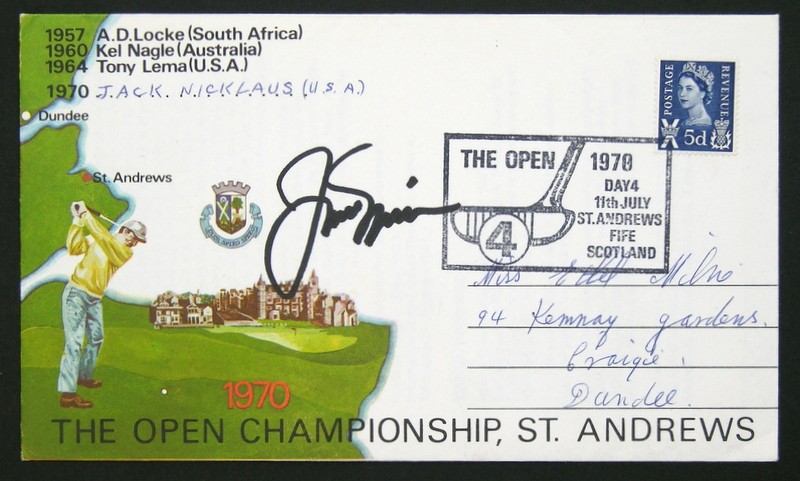 1957 A.D.Locke (South Africa)
1960 Kel Nagle (Australia)
1964 Tony Lema (U.S.A.)
1970 JACK. NICKLAUS (U.S.A.)
Dundee
St. Andrews
POSTAGE
REVENUE
5d
THE OPEN 1970
DAY4
11th JULY
ST.ANDREWS
FIFE
SCOTLAND
4
Miss Milne
94 Kemnay gardens.
Craigie.
Dundee.
1970
THE OPEN CHAMPIONSHIP, ST. ANDREWS